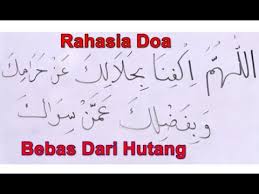 Rahasia Doa
اَللّٰهُمَّ اكْفِنَا بِحَلَالِكَ عَنْ حَرَامِكَ
وَبِفَضْلِكَ عَمَّنْ سِوَاكَ
Bebas Dari Hutang